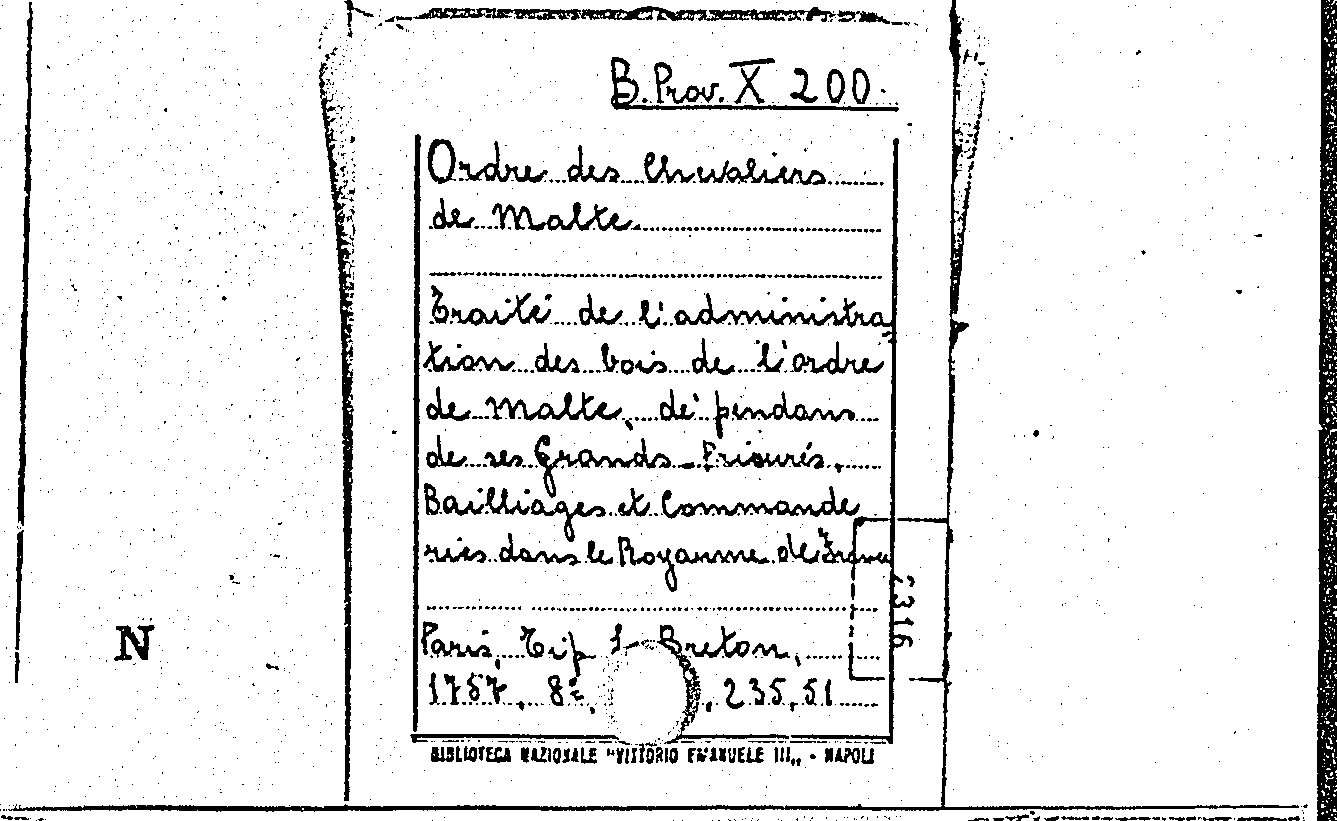 B. Prov. X 200.
Ordre des Chevaliers
de Malte.
Traité de l'administra
tion des bois de l'ordre
de Malte, dépendans
de ses Grands-Prieurés,
Bailliages et Commande
ries dans le Royaume de
Paris, Tip. Breton,
1757, 8º, , 235, 51
BIBLIOTECA NAZIONALE "VITTORIO EMANUELE III„ - NAPOLI
2316
N